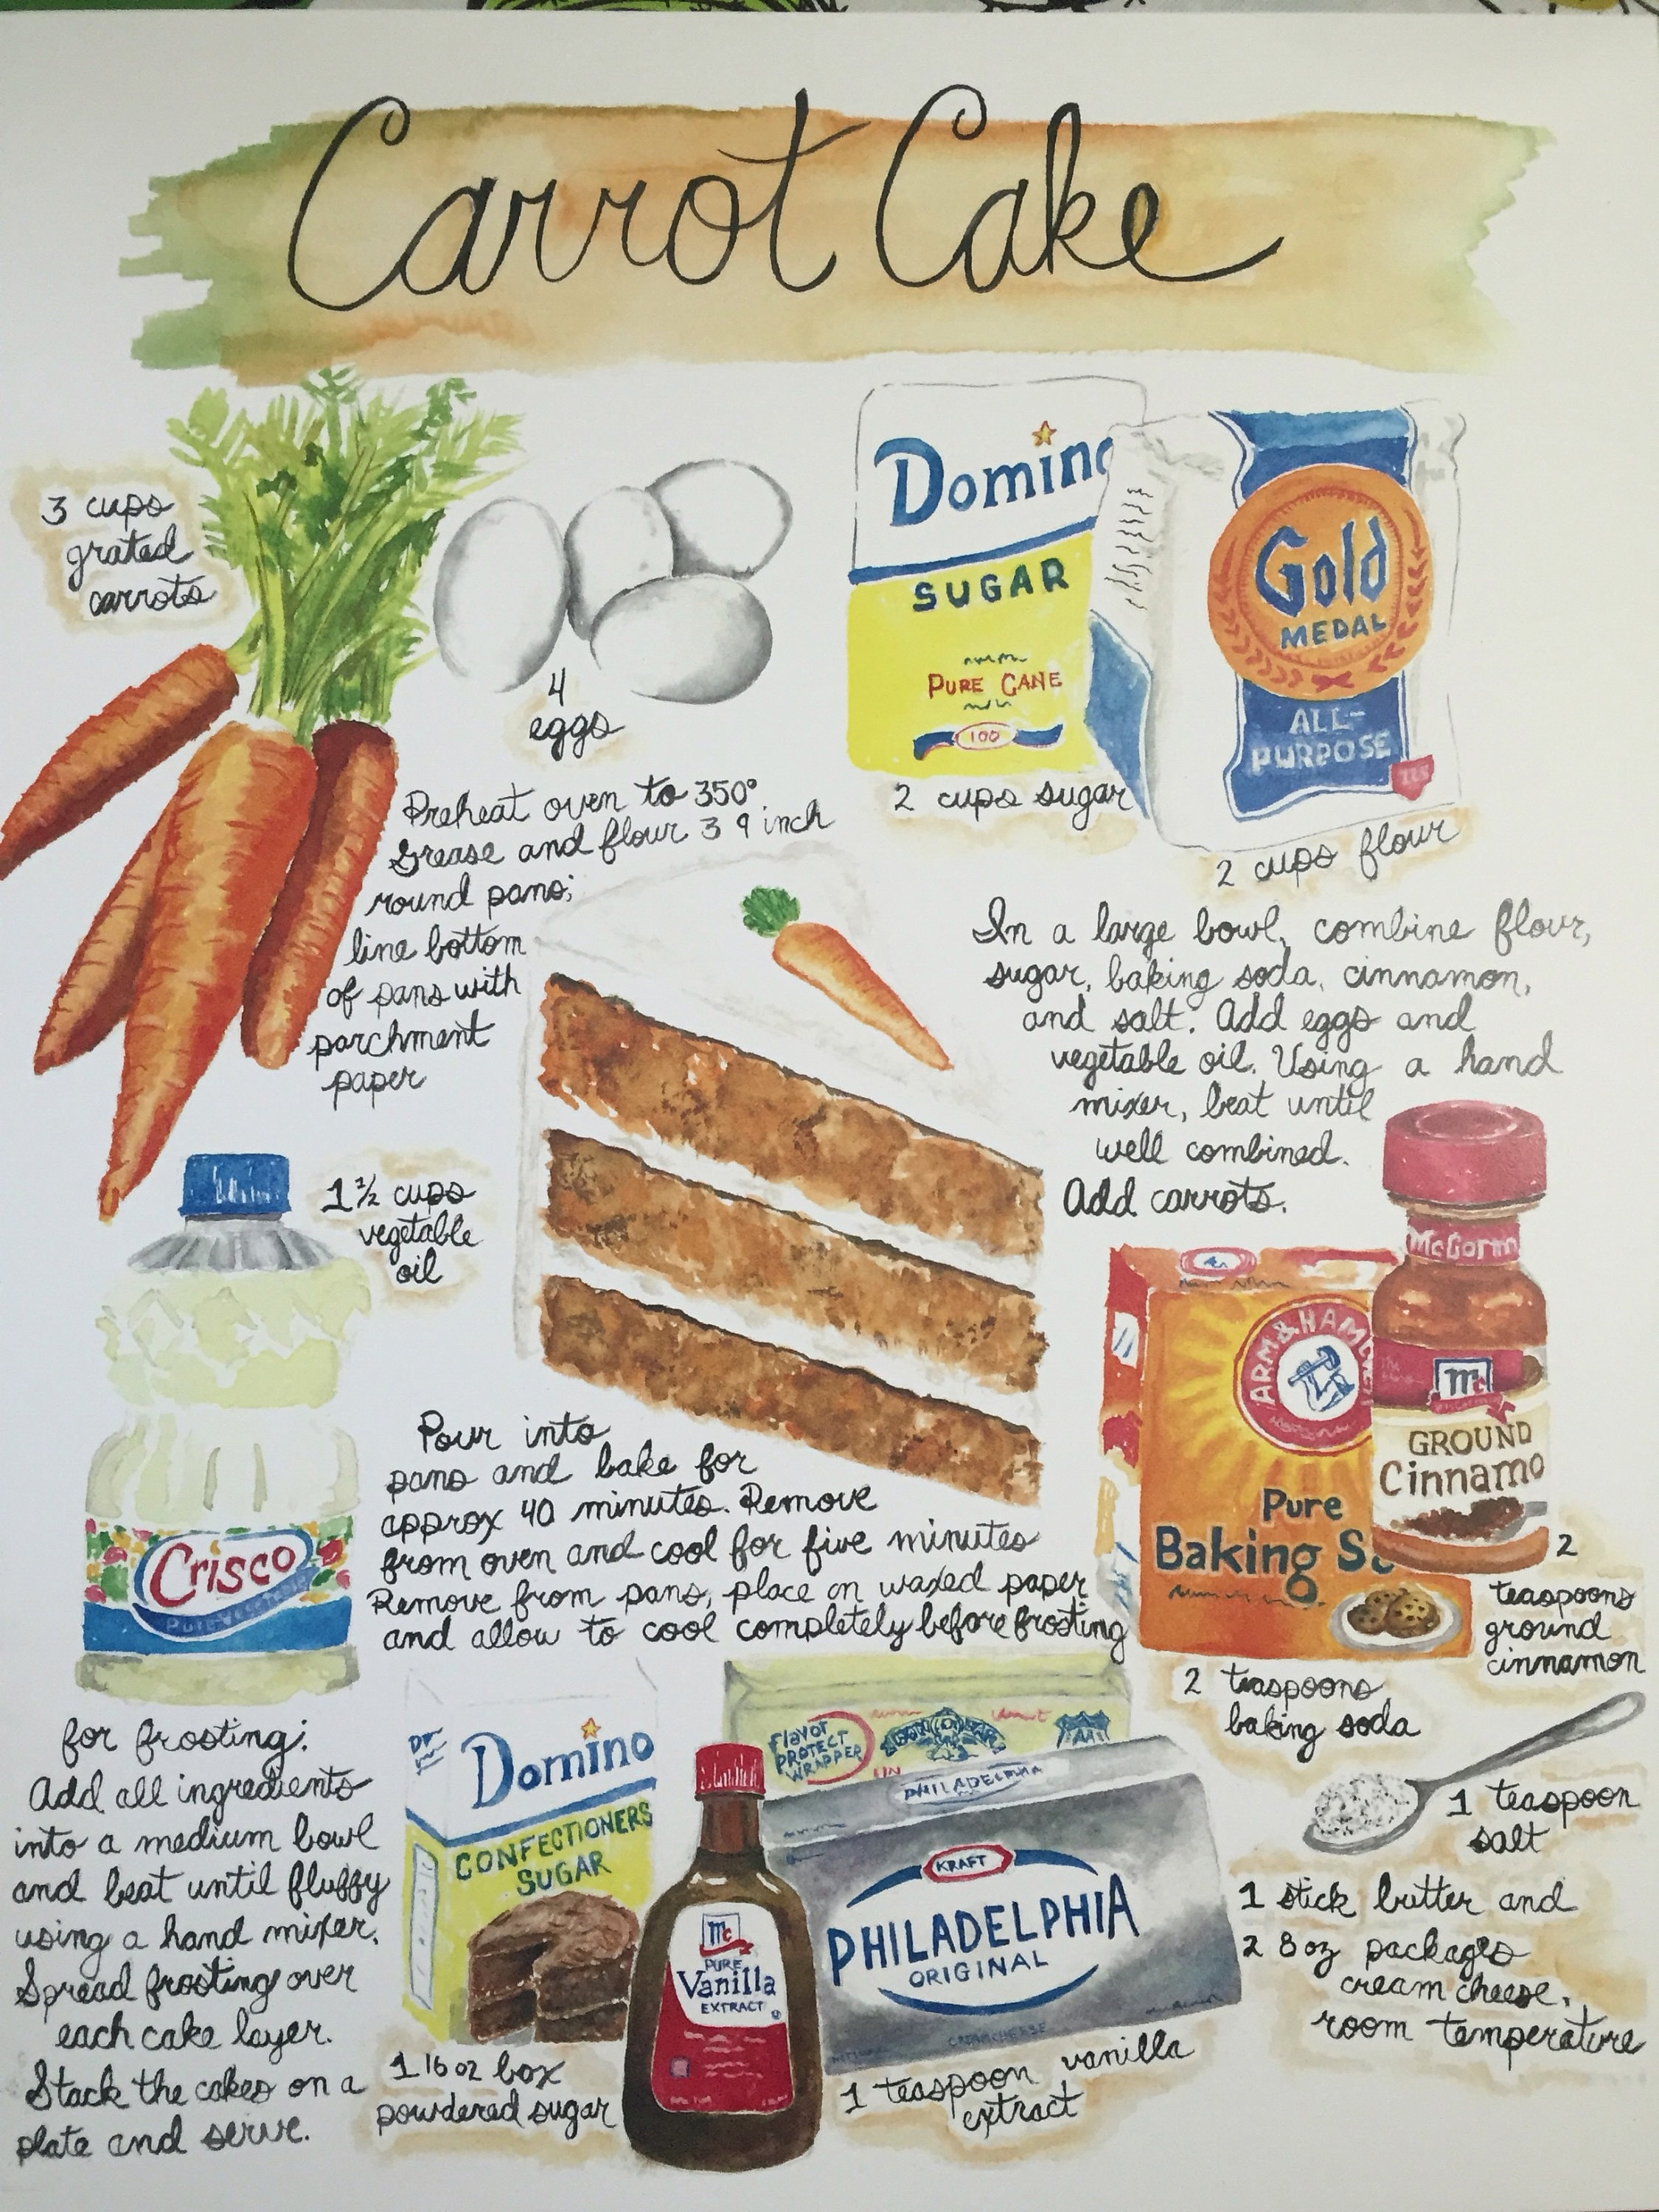 Carrot Cake
3 cups
grated
carrots
4
eggs
Domino
SUGAR
PURE CANE
100
2 cups sugar
Gold
MEDAL
ALL-
PURPOSE
2 cups flour
Preheat oven to 350°
Grease and flour 3 9 inch
round pans;
line bottom
of pans with
parchment
paper
In a large bowl, combine flour,
sugar, baking soda, cinnamon,
and salt. Add eggs and
vegetable oil. Using a hand
mixer, beat until
well combined.
Add carrots.
1 1/2 cups
vegetable
oil
Crisco
PURE VEGETABLE
McCorm
ARM & HAMMER
Mc
GROUND
Cinnamo
Pure
Baking So
2
teaspoons
ground
cinnamon
2 teaspoons
baking soda
Pour into
pans and bake for
approx 40 minutes. Remove
from oven and cool for five minutes
Remove from pans, place on waxed paper
and allow to cool completely before frosting
for frosting:
Add all ingredients
into a medium bowl
and beat until fluffy
using a hand mixer.
Spread frosting over
each cake layer.
Stack the cakes on a
plate and serve.
Domino
CONFECTIONERS
SUGAR
1 16 oz box
powdered sugar
Mc
PURE
Vanilla
EXTRACT
FLAVOR
PROTECT
WRAPPER
PHILADELPHIA
KRAFT
PHILADELPHIA
ORIGINAL
CREAM CHEESE
1 teaspoon vanilla
extract
1 teaspoon
salt
1 stick butter and
2 8 oz packages
cream cheese,
room temperature